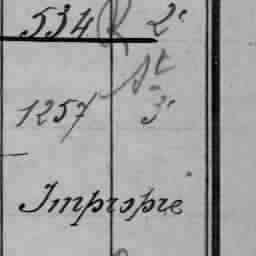 534 2e
At
1257 3e
Impropre